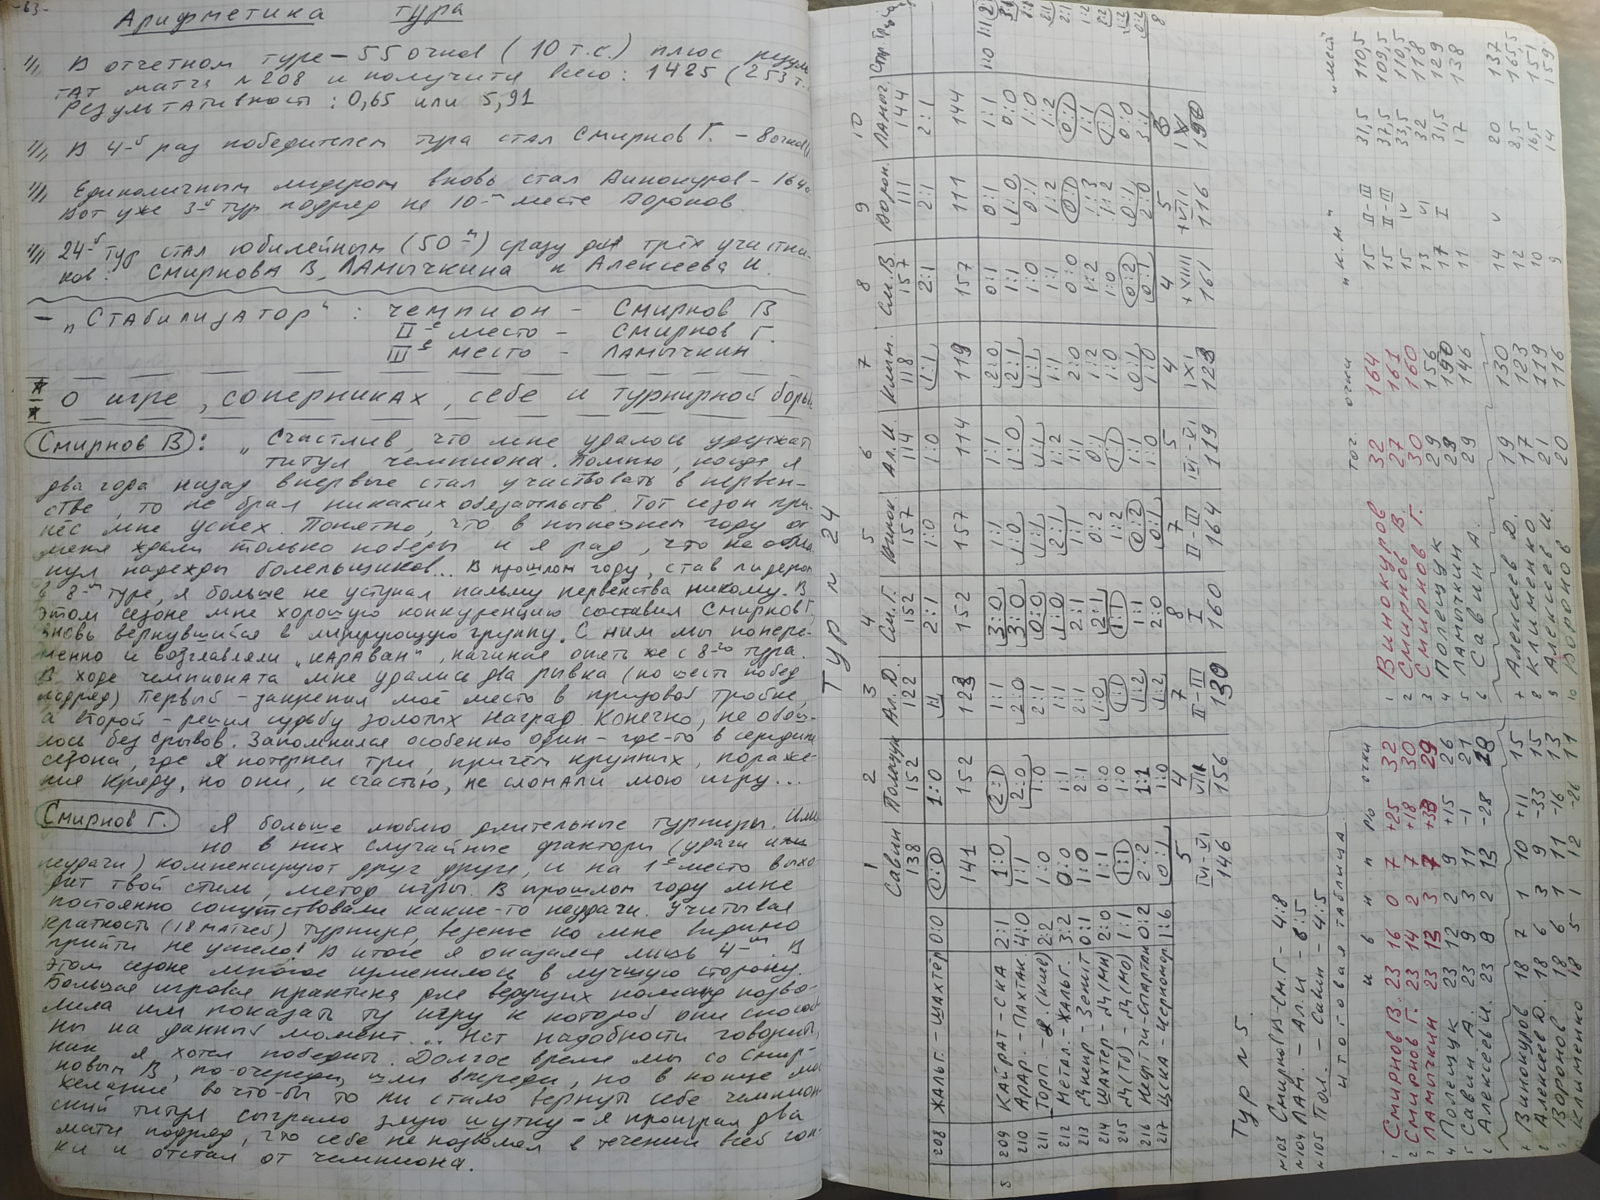 -63-
Арифметика тура
В отчетном туре - 55 очков (10 т.с.) плюс резуль-
тат матча №208 и получите всего: 1425 (253 т.
Результативность: 0,65 или 5,91
В 4-й раз победителем тура стал Смирнов Г. - 8 очков
Единоличным лидером вновь стал Винокуров - 164
Вот уже 3-й тур подряд на 10-м месте Воронов
24-й тур стал юбилейным (50-м) сразу для трёх участни-
ков: Смирнова В, Ламычкина и Алексеева И.
- "Стабилизатор": чемпион - Смирнов В
II-е место - Смирнов Г.
III-е место - Ламычкин
О игре, соперниках, себе и турнирной борь
Смирнов В: "Счастлив, что мне удалось удержать
титул чемпиона. Помню, когда я
два года назад впервые стал участвовать в первен-
стве, то не брал никаких обязательств. Тот сезон при-
нёс мне успех. Понятно, что в нынешнем году от
меня ждали только победы и я рад, что не обма-
нул надежды болельщиков... В прошлом году, став лидером
в 8-м туре, я больше не уступал пальму первенства никому. В
этом сезоне мне хорошую конкуренцию составил Смирнов Г,
вновь вернувшийся в лидирующую группу. С ним мы попере-
менно и возглавляли "караван", начиная опять же с 8-го тура.
В ходе чемпионата мне удались два рывка (по шесть побед
подряд) первый - закрепил моё место в призовой тройке,
а второй - решил судьбу золотых наград. Конечно, не обош-
лось без срывов. Запомнился особенно один - где-то в середине
сезона, где я потерпел три, причём крупных, пораже-
ния кряду, но они, к счастью, не сломали мою игру...
Смирнов Г. Я больше люблю длительные турниры. Име
но в них случайные факторы (удачи или
неудачи) компенсируют друг друга, и на 1-е место выхо-
дит твой стиль, метод игры. В прошлом году мне
постоянно сопутствовали какие-то неудачи. Учитывая
краткость (18 матчей) турнира, везенье ко мне видимо
прийти не успело! В итоге я оказался лишь 4-м. В
этом сезоне многое изменилось в лучшую сторону.
Большая игровая практика для ведущих команд позво-
лила им показать ту игру к которой они способ-
ны на данный момент... Нет надобности говорить,
как я хотел победить. Долгое время мы со Смир-
новым В, по-очереди, шли впереди, но в конце
желание во что-бы то ни стало вернуть себе чемпион-
ский титул сыграло злую шутку - я проиграл два
матча подряд, что себе не позволял в течении всей гон-
ки и отстал от чемпиона.
Тур №24
1 2 3 4 5 6 7 8 9 10
Савин Полещук Ал. Д. См. Г. Винок. Ал. И. Клим. См. В. Ворон. Ламыч.
138 152 122 152 157 114 118 157 111 144
208 Жальг. - Шахтёр 0:0 0:0 1:0 1:1 2:1 1:0 1:0 1:1 2:1 2:1 2:1
141 152 123 152 157 114 119 157 111 144
209 Кайрат - СКА 2:1 1:0 2:1 1:1 3:0 1:1 1:1 2:0 0:1 0:1 1:1
210 Арар. - Пахтак 4:0 1:1 2:0 2:0 3:0 1:0 1:0 2:1 1:1 1:0 0:0
211 Торп. - Д (Кише) 2:2 1:0 1:0 2:1 0:0 1:1 1:1 1:1 1:0 0:1 1:0
212 Метал. - Жальг. 3:2 0:0 1:1 1:1 1:0 2:1 1:2 1:1 1:1 1:2 1:2
213 Днепр - Зенит 0:1 1:0 2:1 2:1 2:1 1:1 1:1 2:0 0:0 0:1 0:1
214 Шахтёр - Д (Мн) 2:0 1:1 0:0 1:0 2:1 0:2 0:1 1:2 1:2 1:3 1:1
215 Д (Тб) - Д (Мо) 1:1 1:1 1:0 1:1 1:1 1:2 1:1 1:0 1:0 1:2 0:1
216 Нефтчи - Спартак 0:2 2:2 1:1 1:2 1:1 0:2 1:1 0:1 0:2 0:1 0:0
217 ЦСКА - Черномор. 1:6 0:1 1:0 1:2 2:0 0:1 1:0 1:0 0:1 2:0 3:1
5 4 7 8 7 5 4 4 5
IV-VI VIII II-III I II-III IV-VI IXI XVIII
146 156 130 160 164 119 123 161 116 190
Тур №5
№103 Смирнов В - См. Г - 4:8
№104 Лам. - Ал. И - 6:5
№105 Пол. - Савин - 4:5
Итоговая таблица
и в н п р/о очки
1 Смирнов В. 23 16 0 7 +25 32
2 Смирнов Г. 23 14 2 7 +18 30
3 Ламычкин 23 13 3 7 +38 29
4 Полещук 23 12 2 9 +15 26
5 Савин А. 23 9 3 11 -1 21
6 Алексеев И. 23 8 2 13 -28 18
7 Винокуров 18 7 1 10 +11 15
8 Алексеев Д. 18 6 3 9 -33 15
9 Воронов 18 6 1 11 -16 13
10 Клименко 18 5 1 12 -26 11
тог. очки "к.н" "мяч"
1 Винокуров 32 164 15 II-III 31,5 110,5
2 Смирнов В 27 161 15 II-III 37,5 109,5
3 Смирнов Г. 30 160 15 IV 33,5 110,5
4 Полещук 29 156 13 VI 32 118
5 Ламычкин 28 190 17 I 31,5 129
6 Савин А. 29 146 11 17 138
7 Алексеев Д. 19 130 14 V 20 137
8 Клименко 17 123 12 8,5 165,5
9 Алексеев И. 21 119 10 16,5 151
10 Воронов 20 116 9 14 159